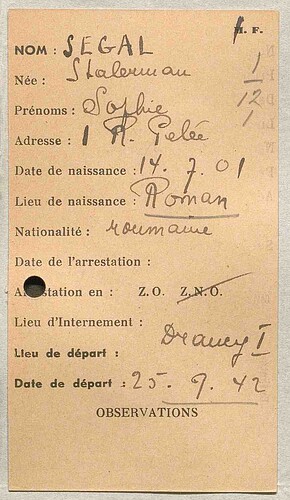 M. F.
NOM : SEGAL
Née : Stalerman
1
Prénoms : Sophie
12
1
Adresse : 1 R. Pelée
Date de naissance : 14. 7. 01
Lieu de naissance : Roman
Nationalité : roumaine
Date de l'arrestation :
Arrestation en : Z.O. Z.N.O.
Lieu d'Internement :
Drancy I
Lieu de départ :
Date de départ : 25. 9. 42
OBSERVATIONS